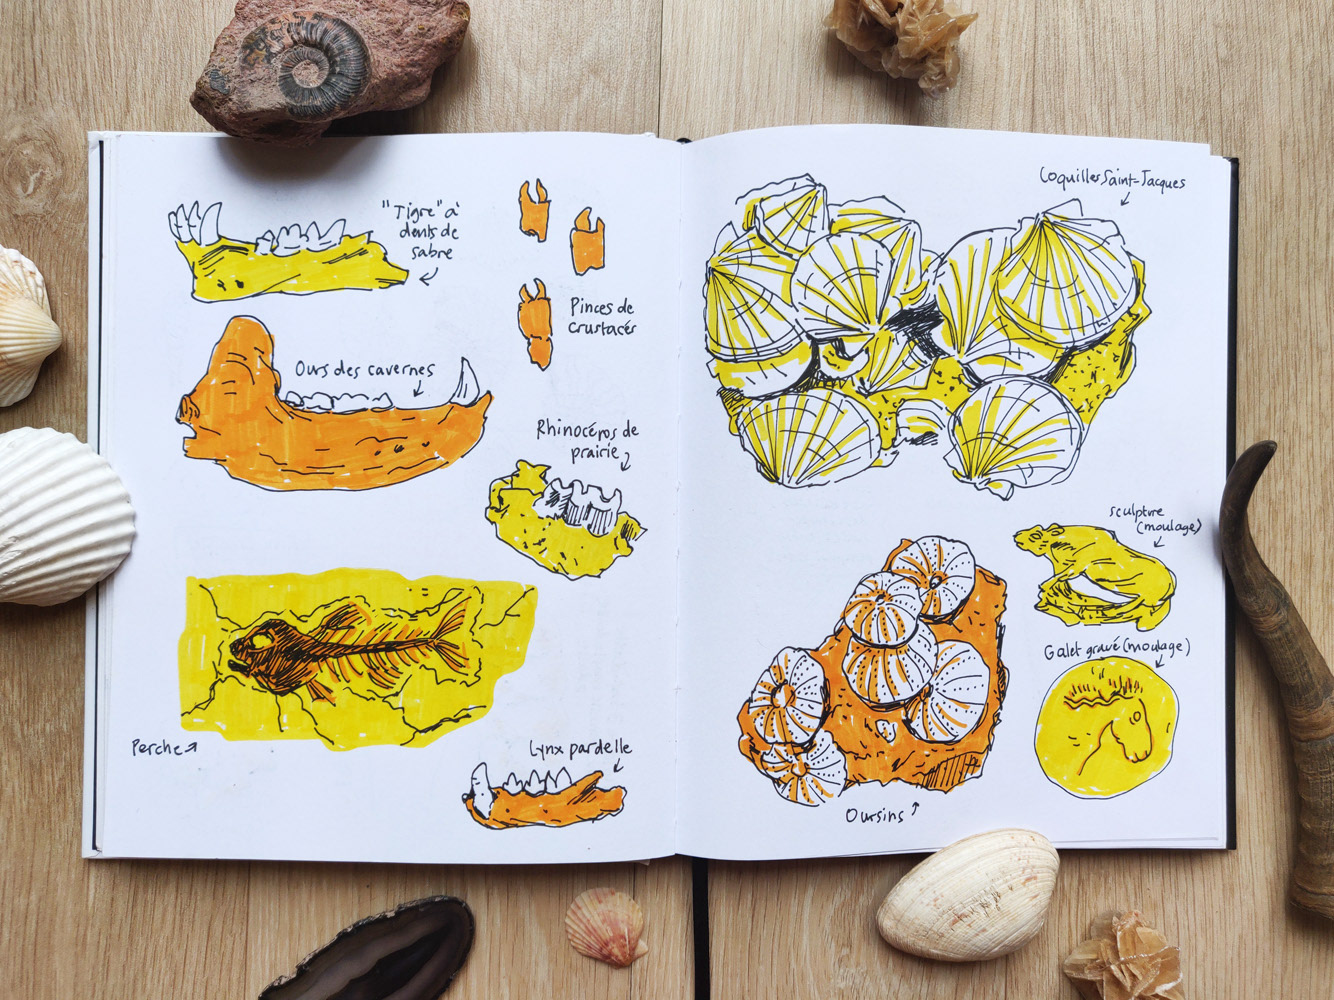 "Tigre" à
dents de
sabre
Pinces de
crustacés
Ours des cavernes
Rhinocéros de
prairie
Perche
Lynx pardelle
Coquilles Saint-Jacques
sculpture
(moulage)
Galet gravé (moulage)
Oursins